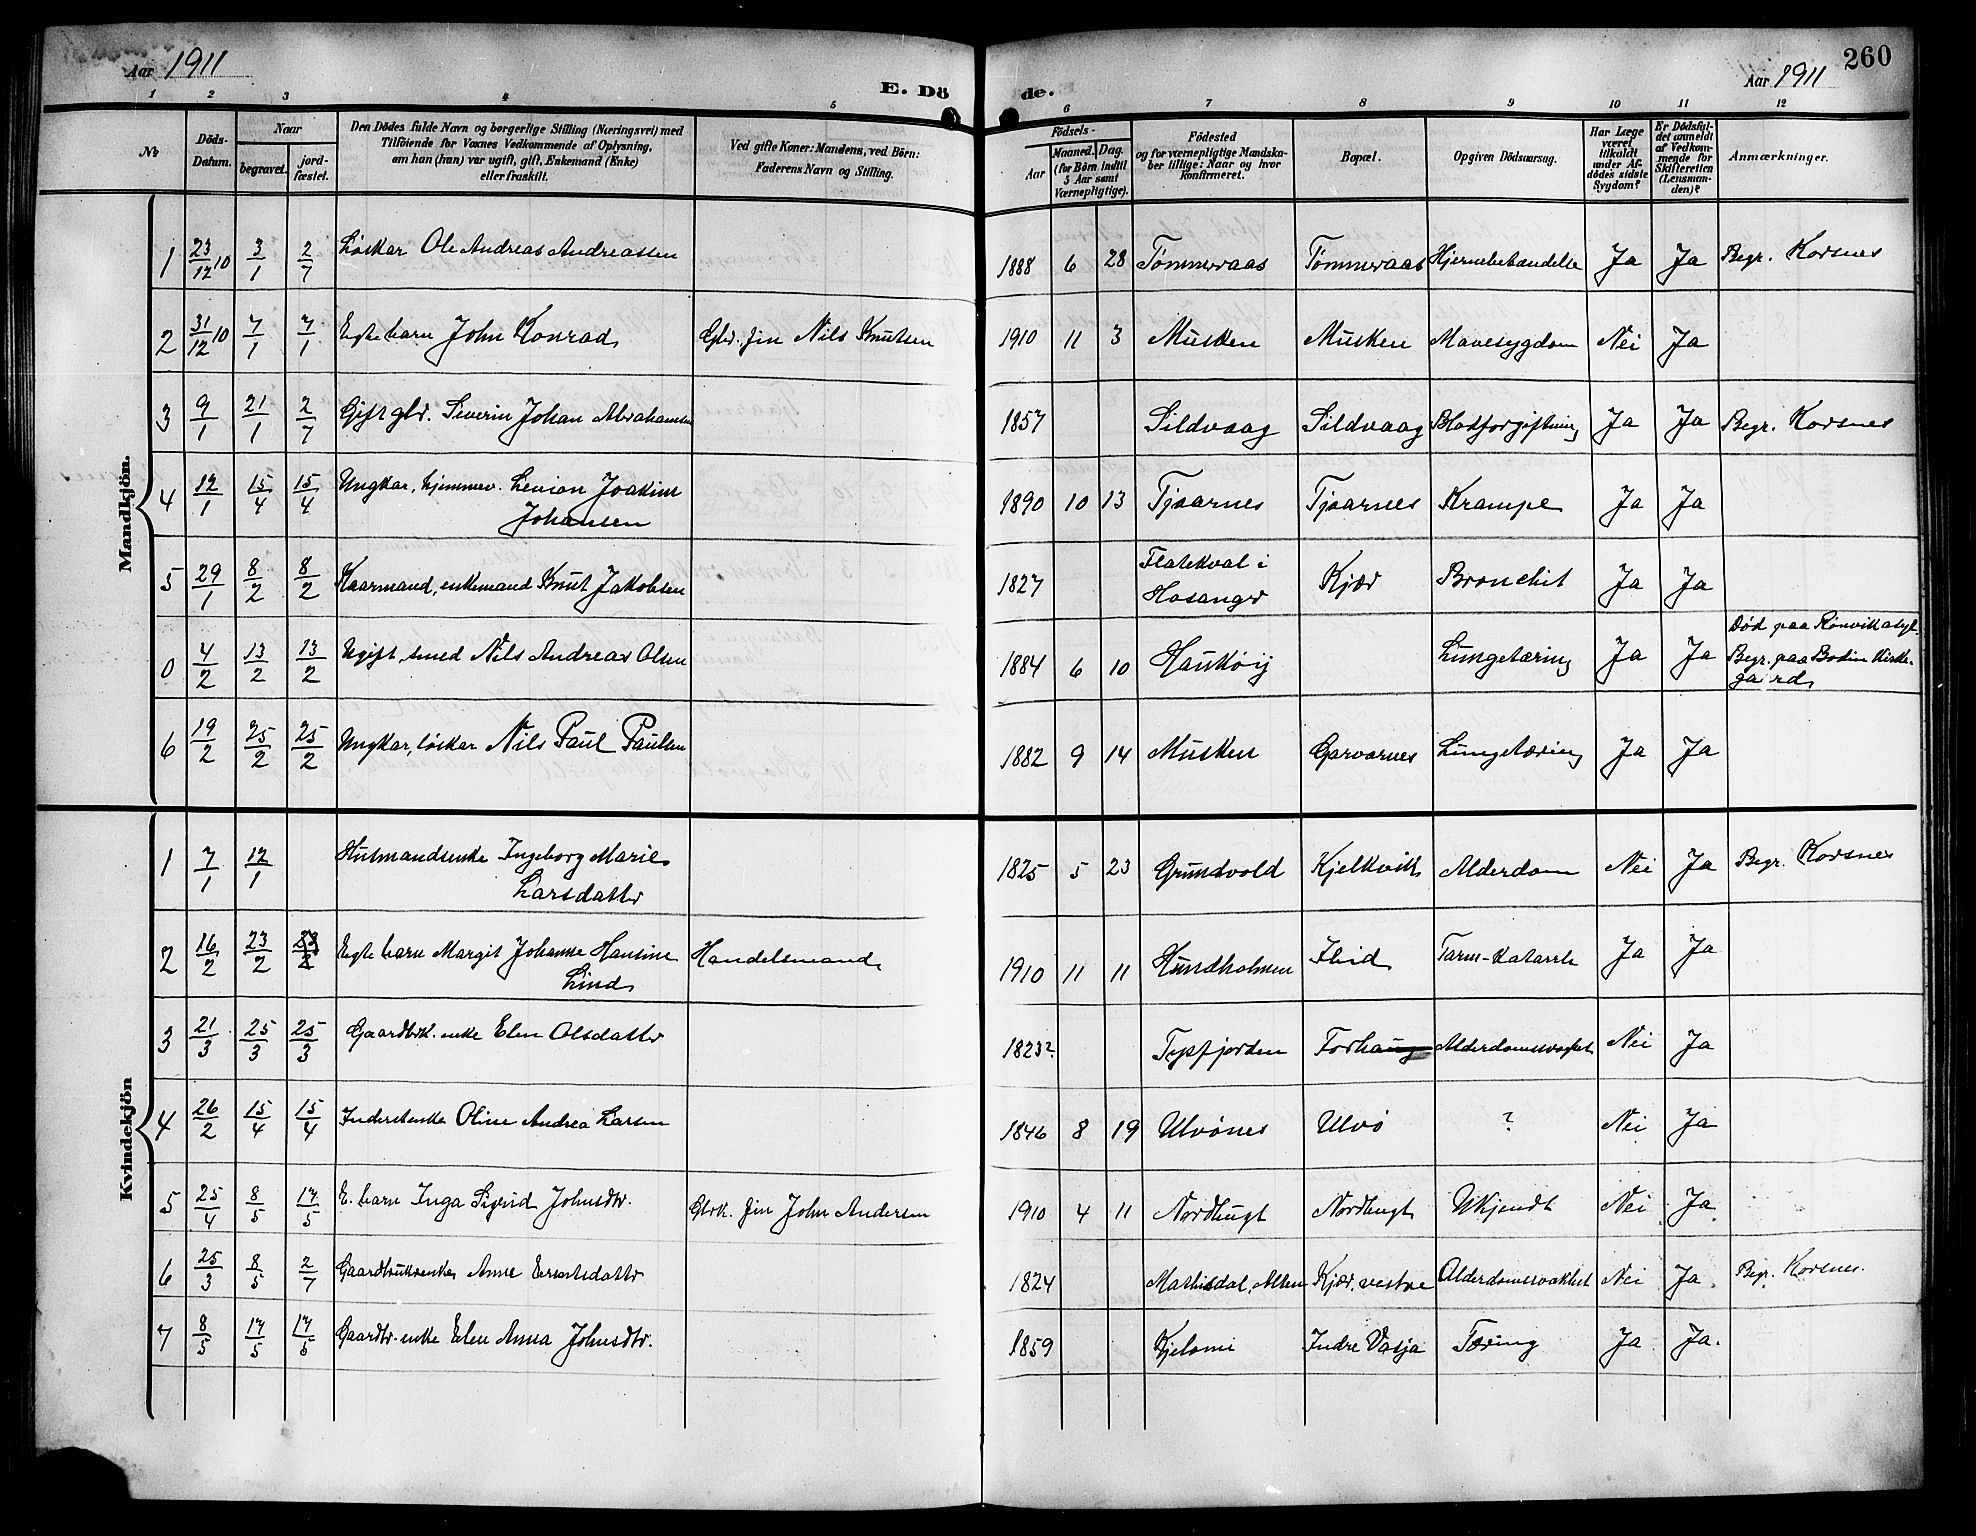 Aar 1911
E. Dö
de.
260
Aar 1911
1 2 3 4 5 6 7 8 9 10 11 12
№
Döds-Datum.
Naar
begravet.
jord-fæstet.
Den Dödes fulde Navn og borgerlige Stilling (Næringsvei) med
Tilföiende for Voxnes Vedkommende af Oplysning,
om han (hun) var ugift, gift, Enkemand (Enke)
eller fraskilt.
Ved gifte Koner: Mandens, ved Börn:
Faderens Navn og Stilling.
Födsels-
Aar
Maaned. Dag.
(for Börn indtil
5 Aar samt
Værnepligtige).
Födested
og for værnepligtige Mandska-
ber tillige: Naar og hvor
konfirmeret.
Bopæl.
Opgiven Dödsaarsag.
Har Læge
været
tilkaldt
under Af-
dödes sidste
Sygdom?
Er Dödsful-
det anmeldt
af Vedkom-
mende for
Skifteretten
(Lensman-
den)?
Anmærkninger.
Mandkjön.
1 23/12 10 3/1 2/7 Løskar Ole Andreas Andreassen 1888 6 28 Tømmeraas Tømmeraas Hjernebetændelse Ja Ja Begr. Korsnes
2 31/12 10 7/1 7/1 Egte barn John Konrad Gbr. Jin Nils Knutsen 1910 11 3 Musken Musken Mavesygdom Nei Ja
3 9/1 21/1 2/7 Gift gbr. Severin Johan Abrahamsen 1857 Sildvaag Sildvaag Blodforgiftning Ja Ja Begr. Korsnes
4 12/1 15/4 15/4 Ungkar, hjemmev. Levion Joakim
Johansen 1890 10 13 Tjaarnes Tjaarnes Krampe Ja Ja
5 29/1 8/2 8/2 Kaarmand, enkemand Knut Jakobsen 1827 Flatekval i
Hosanger Kjær Bronchit Ja Ja
0 4/2 13/2 13/2 Ugift, smed Nils Andreas Olsen 1884 6 10 Haukøij Lungetæring Ja Ja Død paa Rønvik asyl.
Begr. paa Bodin Kirke-
gaard
6 19/2 25/2 25/2 Ungkar, løskar Nils Paul Paulsen 1882 9 14 Musken Garvarnes Lungetæring Ja Ja
Kvindekjön
1 7/1 12/1 Husmandsenke Ingeborg Marie
Larsdatter 1825 5 23 Grundvold Kjelkvik Alderdom Nei Ja Begr. Korsnes
2 16/2 23/2 23/2 Egte barn Margit Johanne Hansine
Lind Handelsmand 1910 11 11 Hundholmen Tarm-Katarrh Ja Ja
3 21/3 25/3 25/3 Gaardbrk. enke Elen Olsdatter 1823? Tysfjorden Forhaug Alderdomssvakhet Nei Ja
4 26/2 15/4 15/4 Inderstenke Oline Andrea Larsen 1846 8 19 Ulvönes Ulvö ? Nei Ja
5 25/4 8/5 17/5 E. barn Inga Sigrid Johnsdtr. Gbrk. Jin John Andersen 1910 4 11 Nordbugt Nordbugt Ukjendt Nei Ja
6 25/3 8/5 2/7 Gaardbrukrenke Anne Erentsdatter 1824 Mathisdal, Alten Kjær, vestre Alderdomssvakhet Nei Ja Begr. Korsnes.
7 8/5 17/5 17/5 Gaardbr. enke Elen Anna Johnsdtr. 1859 Kjelomi Indre Vasja Tæring Ja Ja.